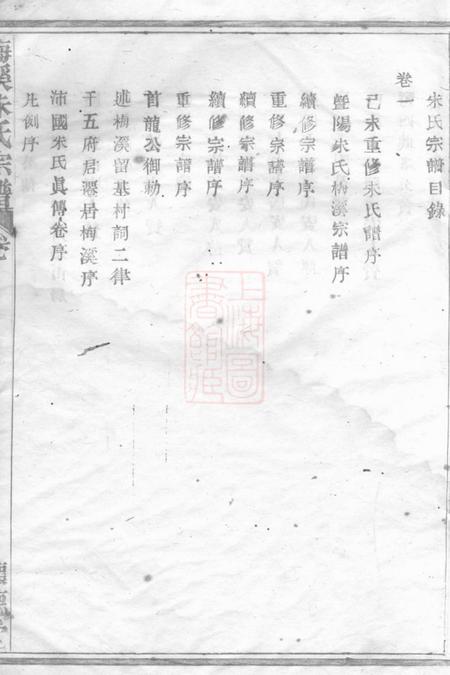 朱氏宗譜目錄
卷一
己未重修朱氏譜序
暨陽朱氏梅溪宗譜序
續修宗譜序
重修宗譜序
續修宗譜序
續修宗譜序
重修宗譜序
首龍公御勅
述梅溪留基村詞二律
千五府居遷居梅溪序
沛國朱氏眞傳卷序
凡例序
梅溪朱氏宗譜 卷一
上海圖書館藏